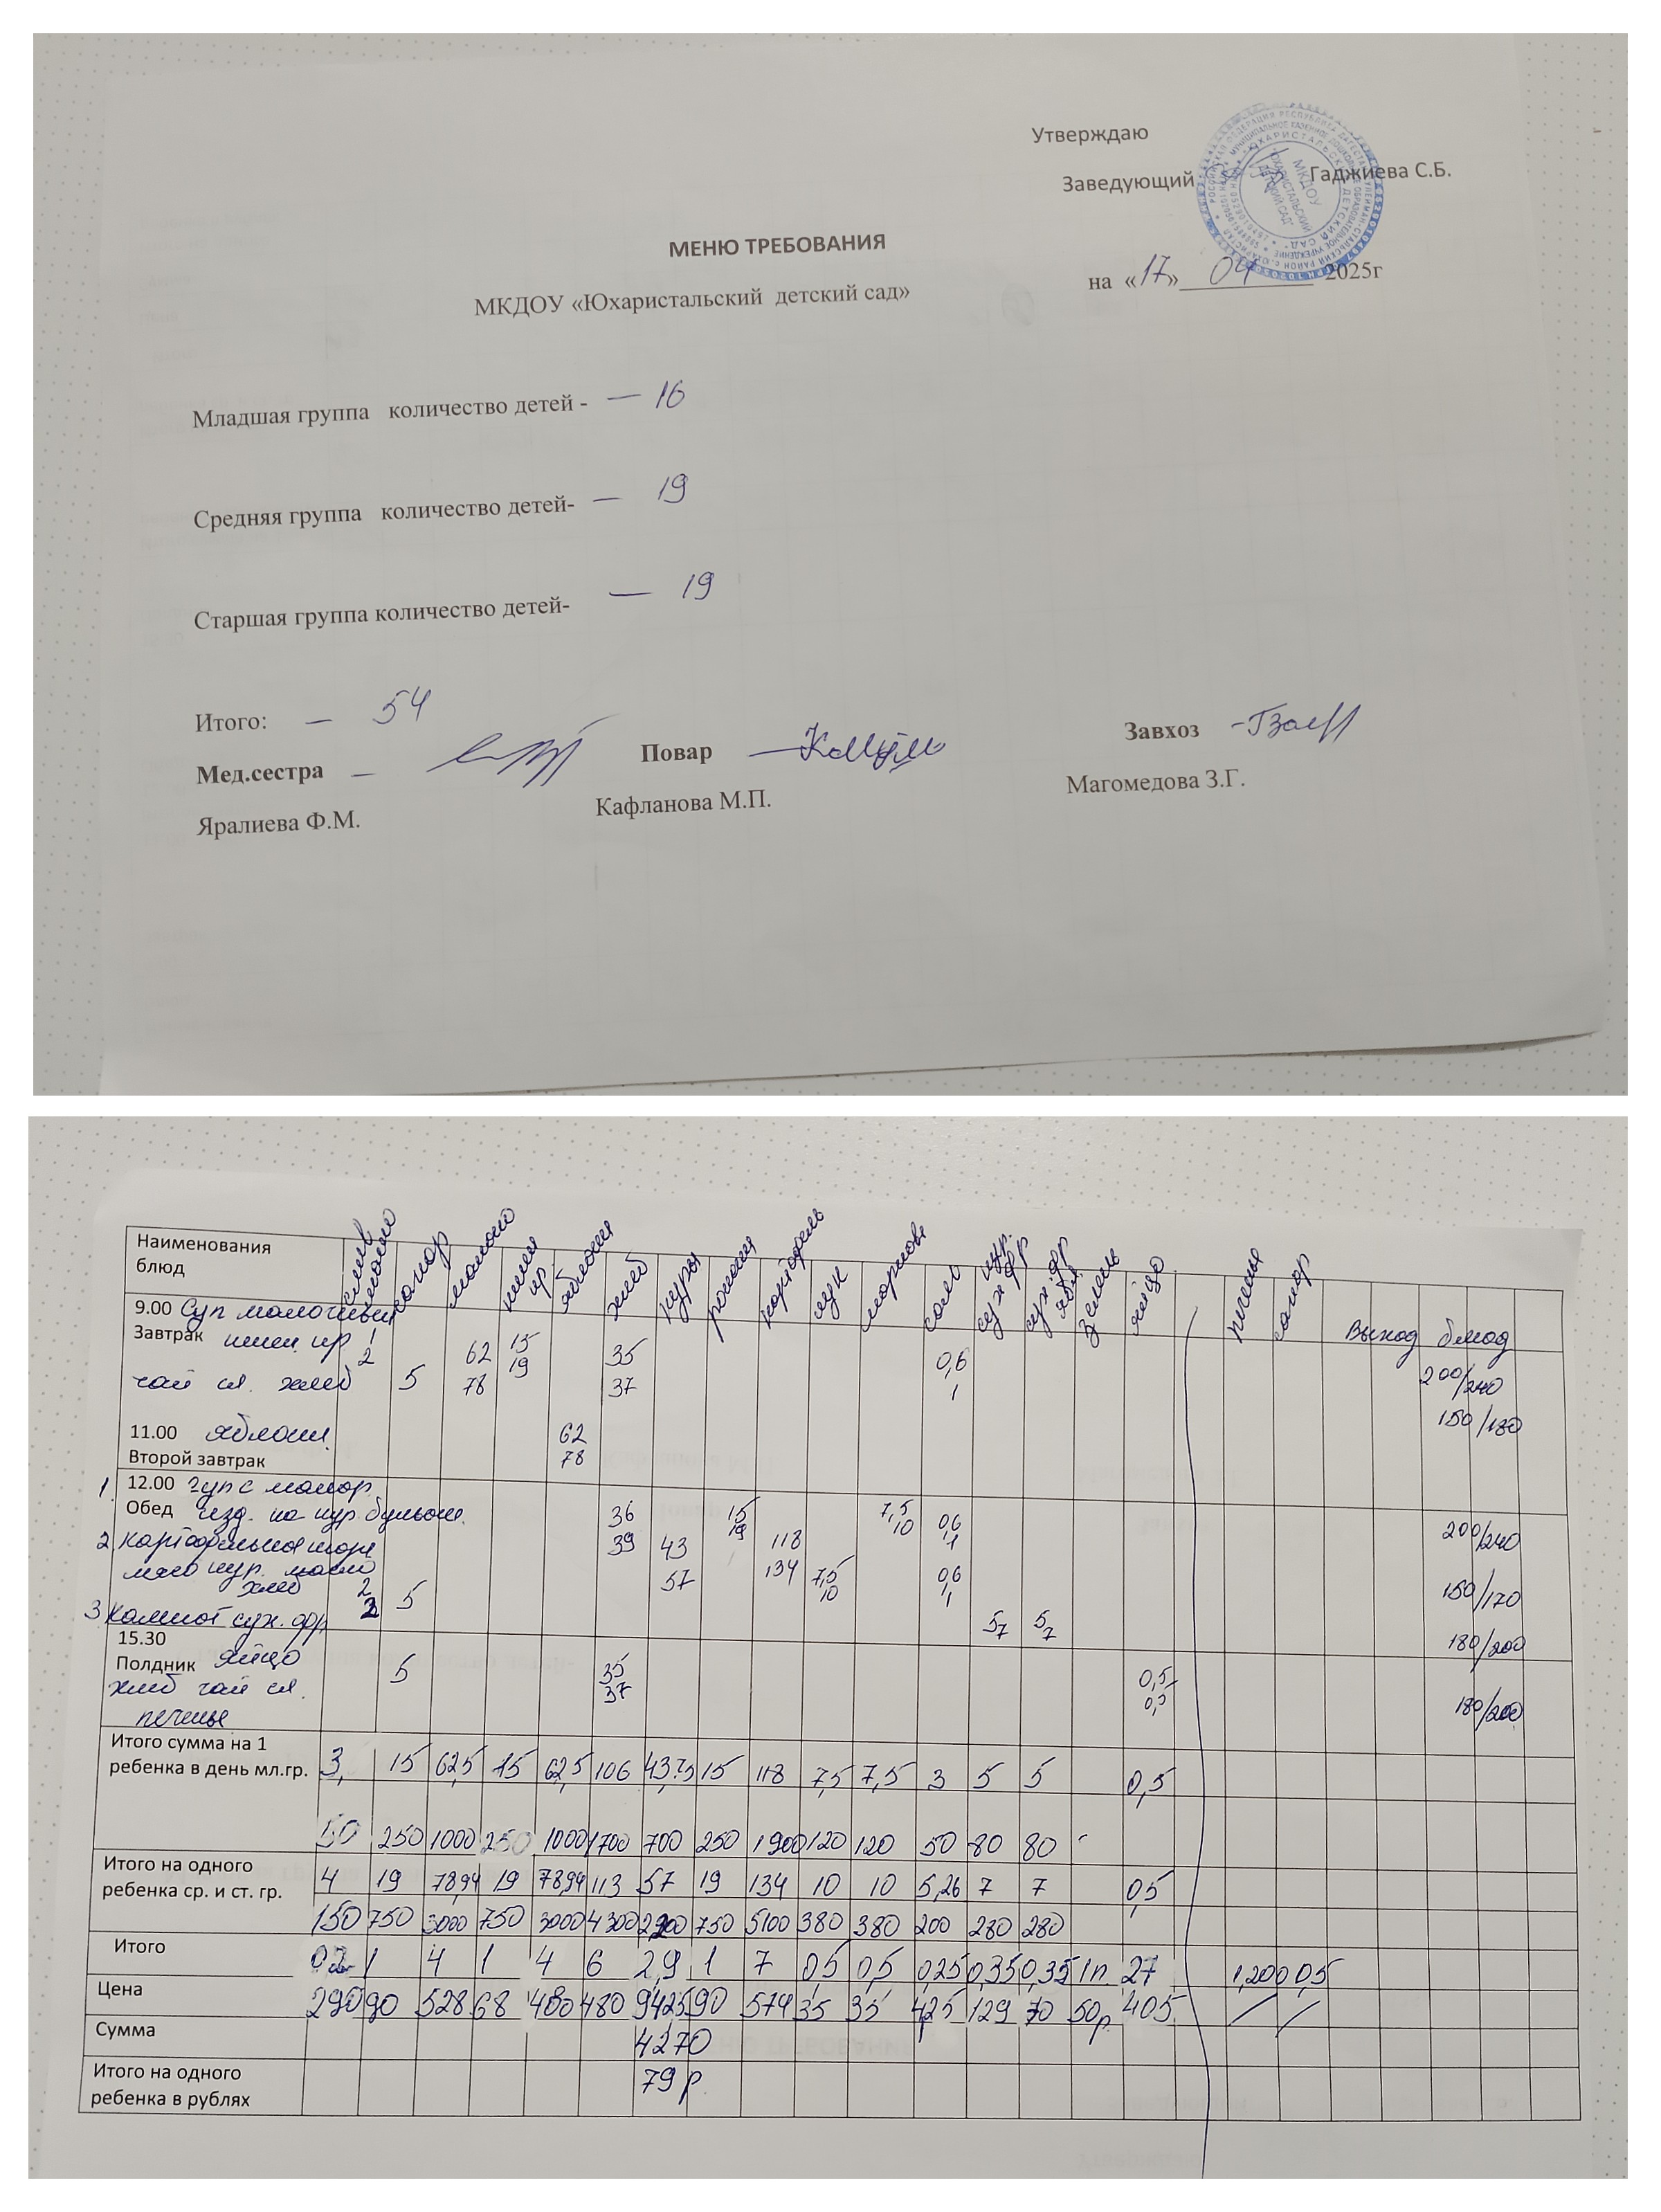 Утверждаю
Заведующий Гаджиева С.Б.
МЕНЮ ТРЕБОВАНИЯ
на «17» 04 2025г
МКДОУ «Юхаристальский детский сад»
Младшая группа количество детей - — 16
Средняя группа количество детей- — 19
Старшая группа количество детей- — 19
Итого: — 54
Мед.сестра — Повар — Завхоз -
Яралиева Ф.М. Кафланова М.П. Магомедова З.Г.
Наименования блюд слив масло сахар молоко пшен кр яблоки хлеб куры рожки картофель лук морковь соль кур. сух фр сух.фр ябл зелень яйцо печенье сахар Выход блюд
9.00 Суп молочный
Завтрак пшен. кр 1 2 62 15 19 35 0,6 200/240
чай сл. хлеб 5 78 37 1 150/180
11.00 яблоки 62
Второй завтрак 78
1 12.00 Суп с макар
Обед изд. на кур бульоне 36 15 19 7,5 10 0,6 1 200/240
2. картофельное пюре 39 43 118
мясо кур. масло 57 134 7,5 10 0,6 1 150/170
хлеб 2 2 5
3 Компот сух. фр 5 7 5 7 180/200
15.30
Полдник яйцо 5 35 0,5
хлеб чай сл. 37 0,5 180/200
печенье
Итого сумма на 1 ребенка в день мл.гр. 3, 15 62,5 15 62,5 106 43,75 15 118 7,5 7,5 3 5 5 0,5
50 250 1000 250 1000 1700 700 250 1900 120 120 50 80 80
Итого на одного ребенка ср. и ст. гр. 4 19 78,94 19 78,94 113 57 19 134 10 10 5,26 7 7 0,5
150 750 3000 750 3000 4300 2200 750 5100 380 380 200 280 280
Итого 0,2 1 4 1 4 6 2,9 1 7 0,5 0,5 0,25 0,35 0,35 1п. 27 1,200 0,5
Цена 290 90 528 68 480 480 942,5 90 574 35 35 4,25 129 70 50р 405
Сумма 4270
Итого на одного ребенка в рублях 79 р.